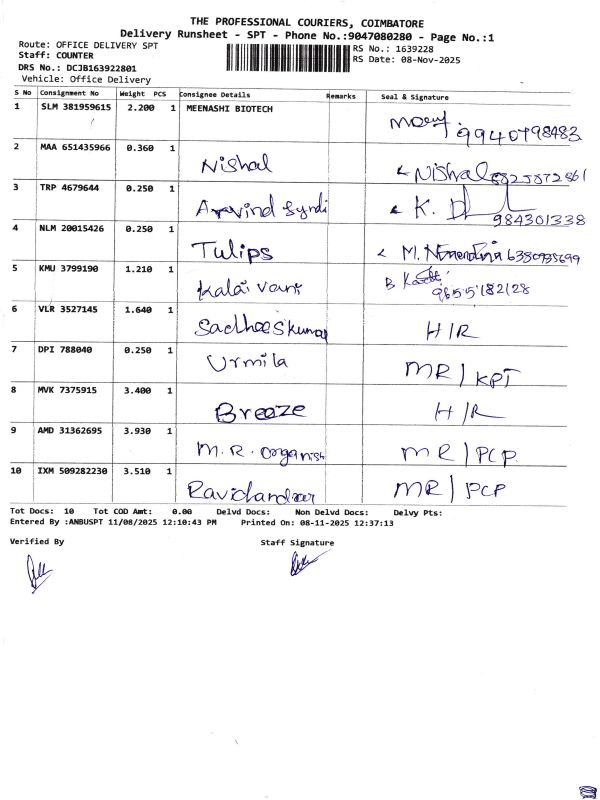 THE PROFESSIONAL COURIERS, COIMBATORE
Delivery Runsheet - SPT - Phone No.:9047080280 - Page No.:1
Route: OFFICE DELIVERY SPT RS No.: 1639228
Staff: COUNTER RS Date: 08-Nov-2025
DRS No.: DCJB163922801
Vehicle: Office Delivery
S No Consignment No Weight PCS Consignee Details Remarks Seal & Signature
1 SLM 381959615 2.200 1 MEENASHI BIOTECH
9940798483
2 MAA 651435966 0.360 1 Nishal Nishal 8825872861
3 TRP 4679644 0.250 1 Aravind Syndi K. 984301338
4 NLM 20015426 0.250 1 Tulips M. 6380935699
5 KMU 3799190 1.210 1 Kalai vani B 9655182128
6 VLR 3527145 1.640 1 Sadheeskumar H/R
7 DPI 788040 0.250 1 Urmila MR/KPT
8 MVK 7375915 3.400 1 Breeze H/R
9 AMD 31362695 3.930 1 M.R. Organish MR/PCP
10 IXM 509282230 3.510 1 Ravichandran MR/PCP
Tot Docs: 10 Tot COD Amt: 0.00 Delvd Docs: Non Delvd Docs: Delvy Pts:
Entered By :ANBUSPT 11/08/2025 12:10:43 PM Printed On: 08-11-2025 12:37:13
Verified By Staff Signature